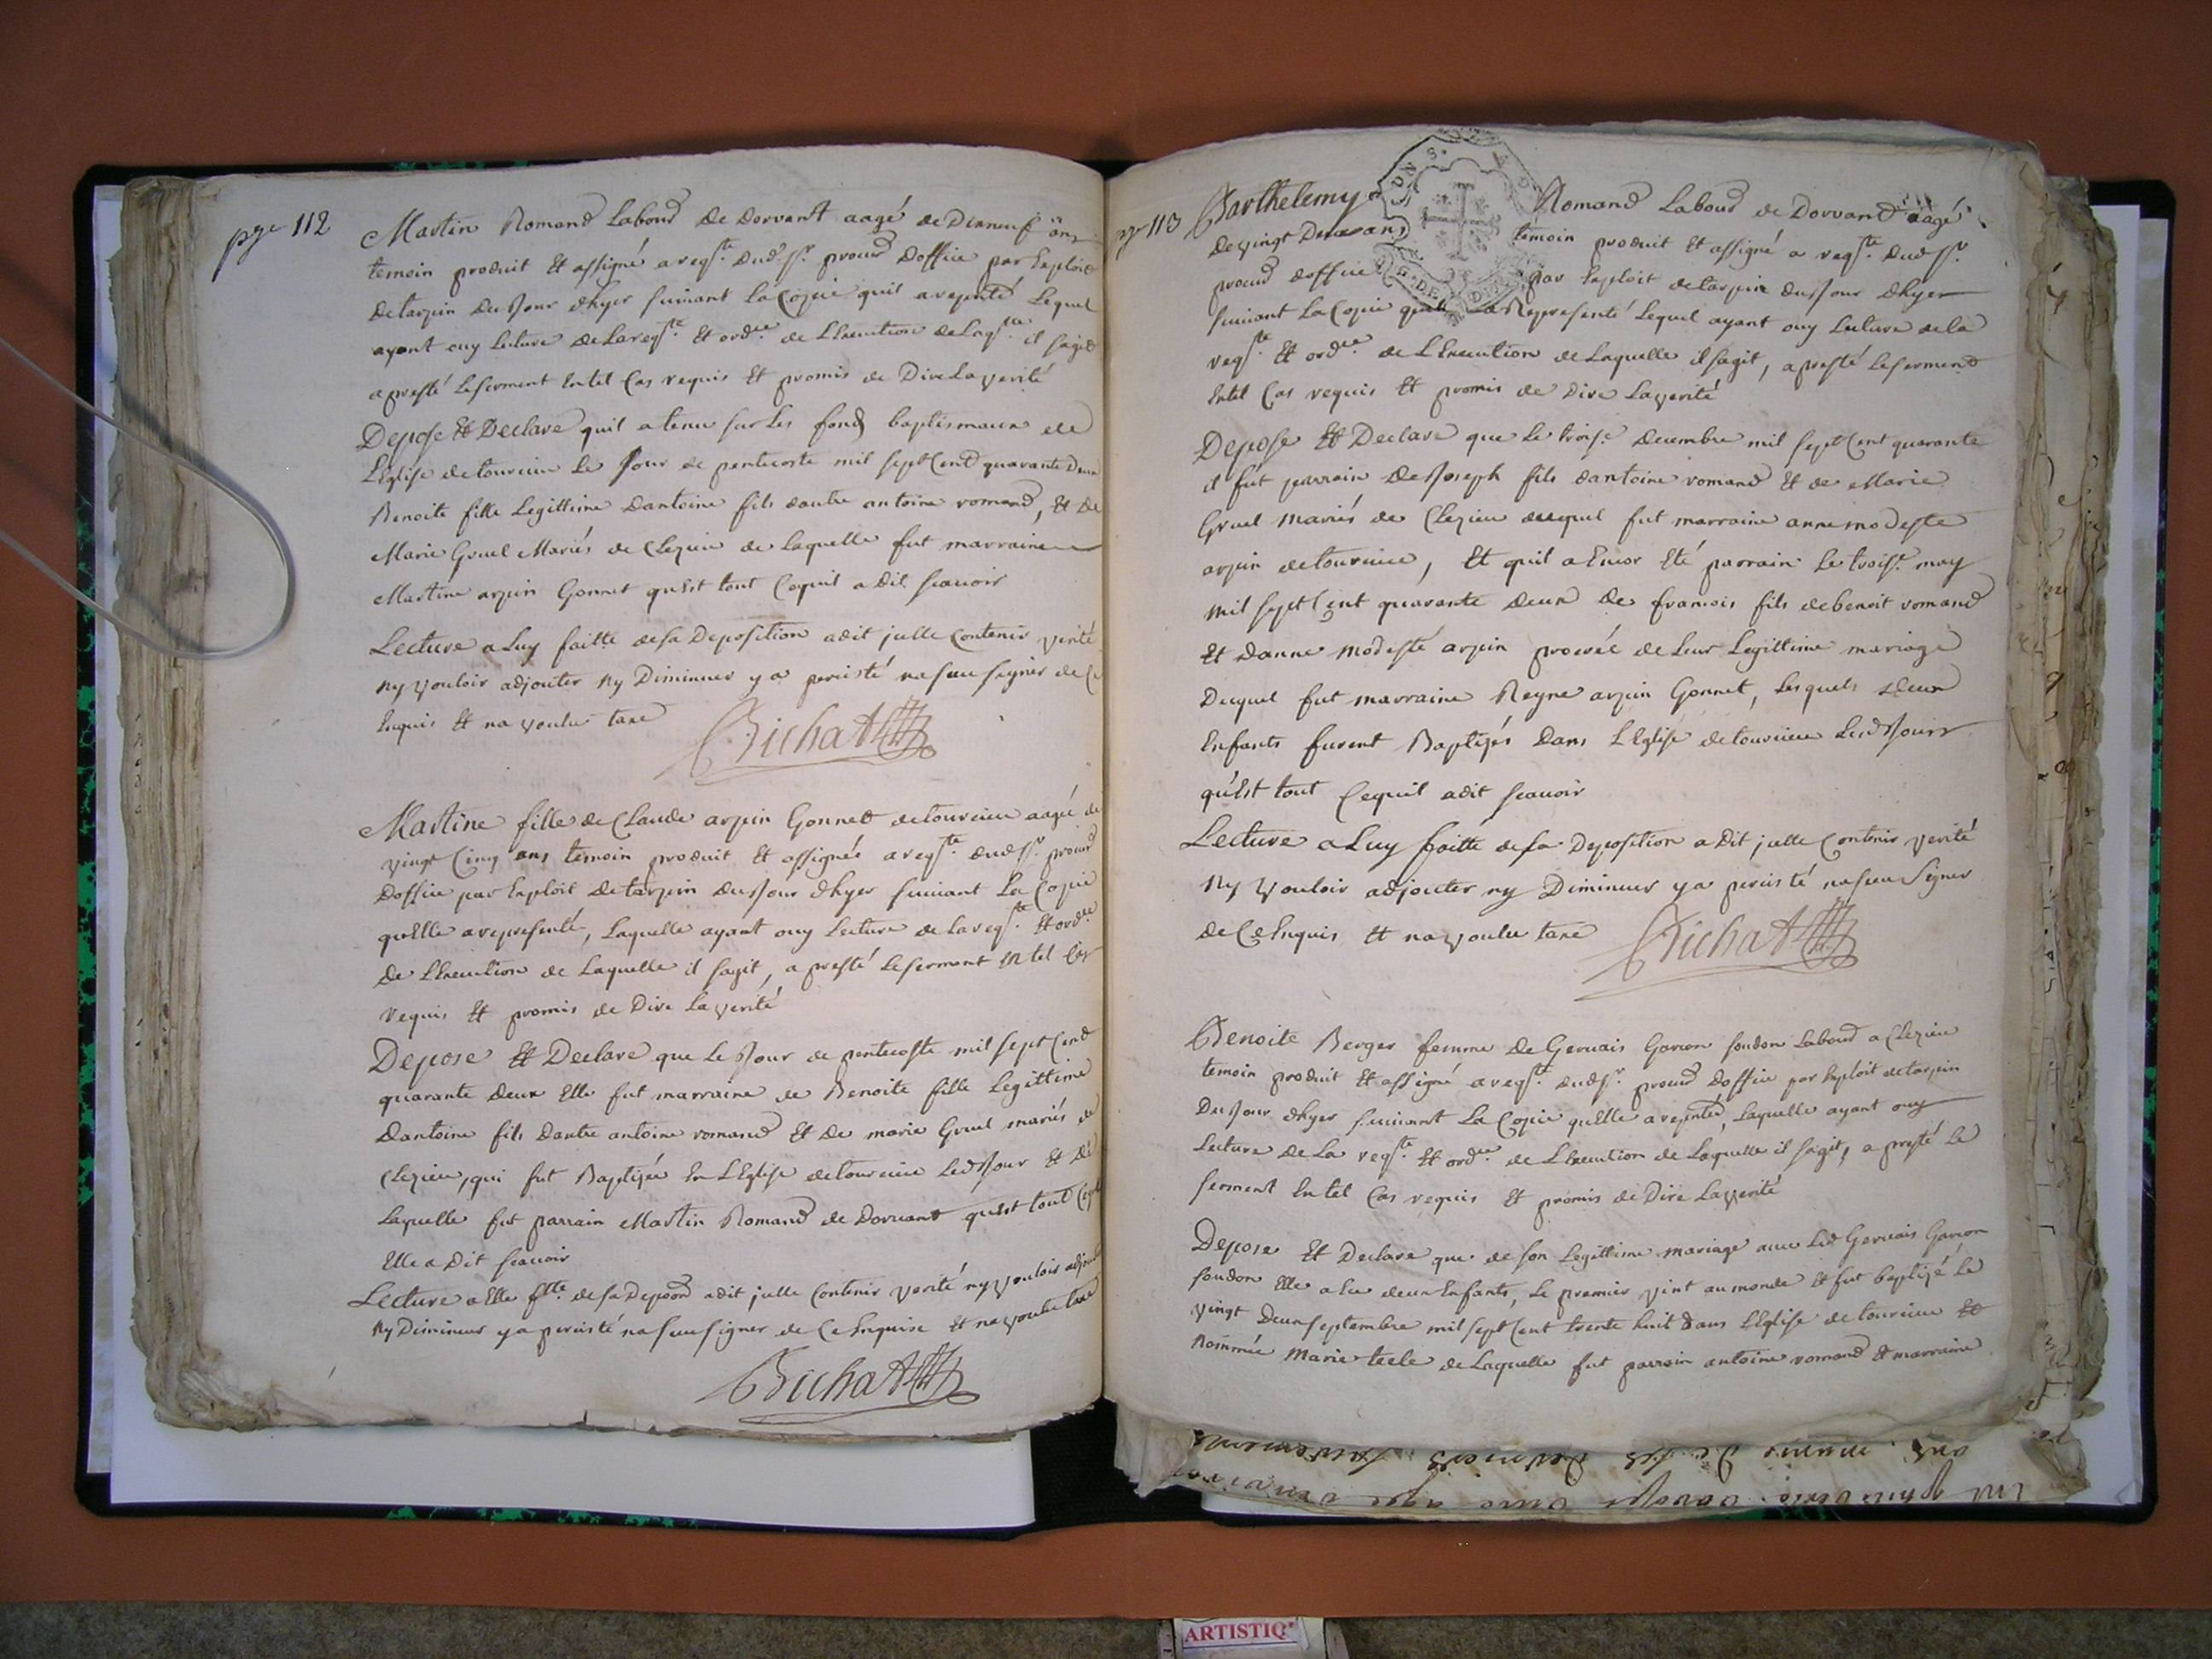 pge 112
Martin Romand labourd de dorvant aagé de Dixneuf ans
temoin produit Et assigné a reqste. dud sr. procurd doffice par Exploit
de tarpin du Jour dhyer suivant la Copie quil a reprntté Lequel
ayant ouy lecture de la reqste. Et ordce. de LExecution de Laqlle. il sagit
a presté le serment En tel Cas requis Et promis de Dire La verité
Depose Et Declare quil a tenu sur Les fonds baptismaux de
LEglise de tourcieu le Jour de pentecoste mil sept Cend quarante Deux
Benoite fille Legittime dantoine fils dautre antoine romand, Et de
Marie Gruel Mariés de Clezieu de laquelle fut marraine
Martine arpin Gonnet quEst tout Cequil a dit scauoir
Lecture a Luy faitte de sa Deposition a dit jcelle Contenir verité
ny vouloir adjouter ny Diminuer y a percisté na sceu signer de Ce
Enquis Et na voulu taxe
Bichat
Martine fille de Claude arpin Gonned de tourcieu aagée de
vingt Cinq ans temoin produit Et assignée a reqste. dud sr. procurd
doffice par Exploit de tarpin du Jour dhyer suivant La Copie
quElle a representé, Laquelle ayant ouy Lecture de la reqste. Et ordce
de LExecution de Laquelle il sagit, a presté le serment En tel Cas
requis Et promis de Dire La verité
Depose Et Declare que Le Jour de pentecoste mil sept Cend
quarante deux Elle fut marraine de Benoite fille Legittime
dantoine fils dautre antoine romand Et de marie Gruel mariés de
Clezieu, qui fut Baptizée En LEglise de tourcieu led Jour Et de
laquelle fut parrain Martin Romand de Dorvant quEst tout Ceque
Elle a Dit scauoir
Lecture a Elle ftte. de sa Depoon a dit jcelle Contenir verité ny vouloir adjouter
ny Diminuer y a percisté na sceu signer de Ce Enquise Et na voulu taxe
Bichat
pge 113
Barthelemy Romand Labourd de Dorvand aagé
de vingt Deux ans temoin produit Et assigné a reqste. dud sr.
procurd doffice par Exploit de tarpin du Jour dhyer
suivant La Copie quil a Representé Lequel ayant ouy Lecture de la
reqste. Et ordce. de LExecution de Laquelle il sagit, a presté le serment
En tel Cas requis Et promis de Dire La verité
Depose Et Declare que Le troise. decembre mil sept Cent quarante
il fut parrain de Joseph fils dantoine romand Et de Marie
Gruel Mariés de Clezieu duquel fut marraine anne modeste
arpin de tourcieu, Et quil a Encor Eté parrain Le troise. may
mil sept Cent quarante deux de francois fils de benoit romand
Et danne modeste arpin procréé de Leur Legittime mariage
Duquel fut marraine Reyne arpin Gonnet, Lesquels deux
Enfants furent Baptizés Dans LEglise de tourcieu Lesd Jours
quEst tout Cequil a dit scauoir
Lecture a Luy faitte de sa Deposition a Dit jcelle Contenir verité
ny vouloir adjouter ny Diminuer y a percisté na sceu Signer
de Ce Enquis Et na voulu taxe
Bichat
Benoite Berger femme de Gervais Garcon soudon Labourd a Clezieu
temoin produit Et assigné a reqste. dud sr. procurd doffice par Exploit de tarpin
du Jour dhyer suivant La Copie quElle a reprntée, Laquelle ayant ouy
Lecture de La reqste. Et ordce. de LExecution de Laquelle il sagit, a presté Le
serment En tel Cas requis Et promis de Dire La verité
Depose Et Declare que de son Legittime mariage avec Led Gervais Garcon
soudon Elle a Eu deux Enfants, Le premier vint au monde Et fut baptizé Le
vingt Deux septembre mil sept Cent trente huit dans LEglise de tourcieu Et
nommée Marie tecle de Laquelle fut parrain antoine romand Et marraine
ARTISTIQ